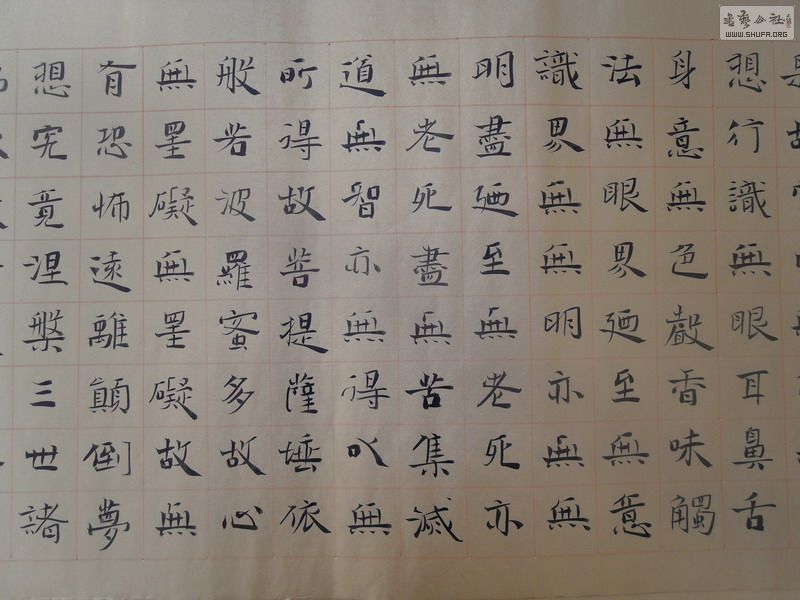 想行識無眼耳鼻舌
身意無色聲香味觸
法無眼界廼至無意
識界無無明亦無無
明盡廼至無老死亦
無老死盡無苦集滅
道無智亦無得以無
所得故菩提薩埵依
般若波羅蜜多故心
無罣礙無罣礙故無
有恐怖遠離顛倒夢
想究竟涅槃三世諸
书艺公社
WWW.SHUFA.ORG